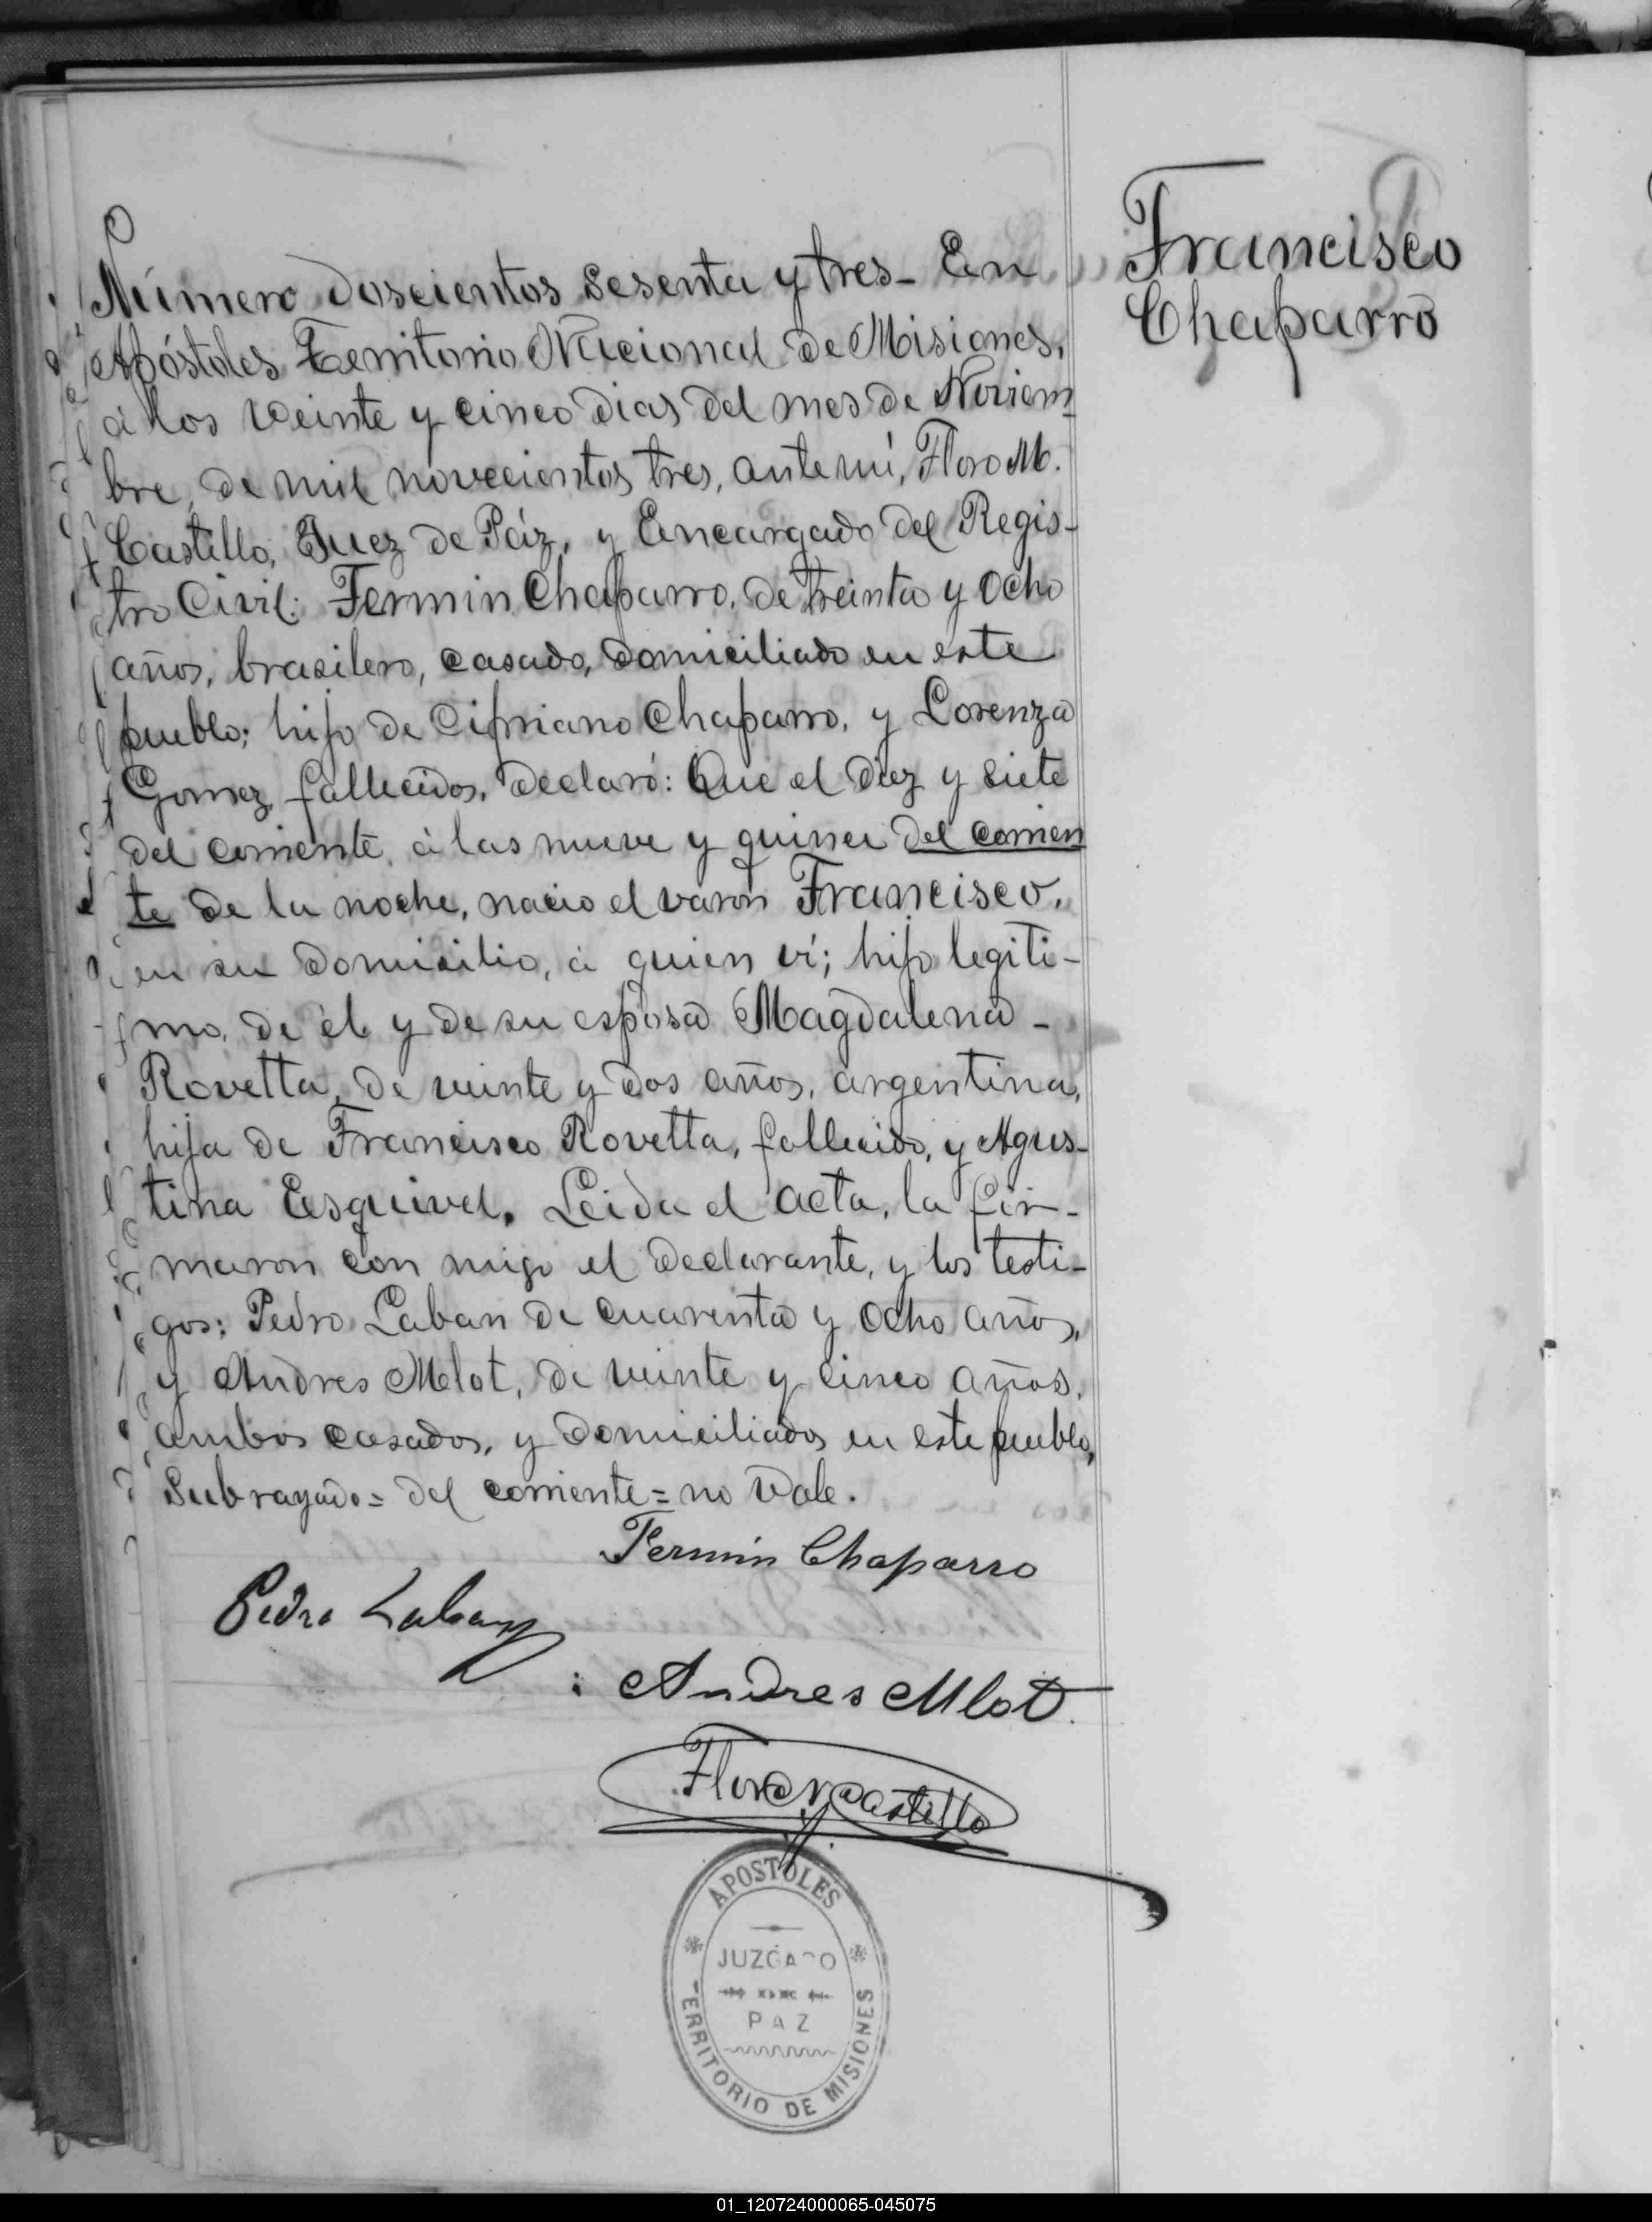 Número doscientos sesenta y tres- En
Apóstoles Territorio Nacional de Misiones,
á los veinte y cinco dias del mes de Noviem-
bre, de mil novecientos tres, ante mí, Floro M.
Castillo, Juez de Páz, y Encargado del Regis-
tro Civil: Fermin Chaparro, de treinta y ocho
años, brasilero, casado, domiciliado en este
pueblo; hijo de Cipriano Chaparro, y Lorenza
Gomez, fallecidos, declaró: Que el diez y siete
del corriente, á las nueve y quince del corrien
te de la noche, nació el varon Francisco,
en su domicilio, á quien ví; hijo legíti-
mo, de él y de su esposa Magdalena -
Rovetta, de veinte y dos años, argentina,
hija de Francisco Rovetta, fallecido, y Agus-
tina Esquivel. Leida el acta, la fir-
maron con migo el declarante, y los testi-
gos: Pedro Laban de cuarenta y ocho años,
y Andres Mlot, de veinte y cinco años,
ambos casados, y domiciliados en este pueblo,
Subrayado= del corriente= no vale.
Francisco
Chaparro
Fermin Chaparro
Pedro Laban
: Andres Mlot.
Floro M Castillo
APOSTOLES
JUZGADO
PAZ
TERRITORIO DE MISIONES
01_120724000065-045075